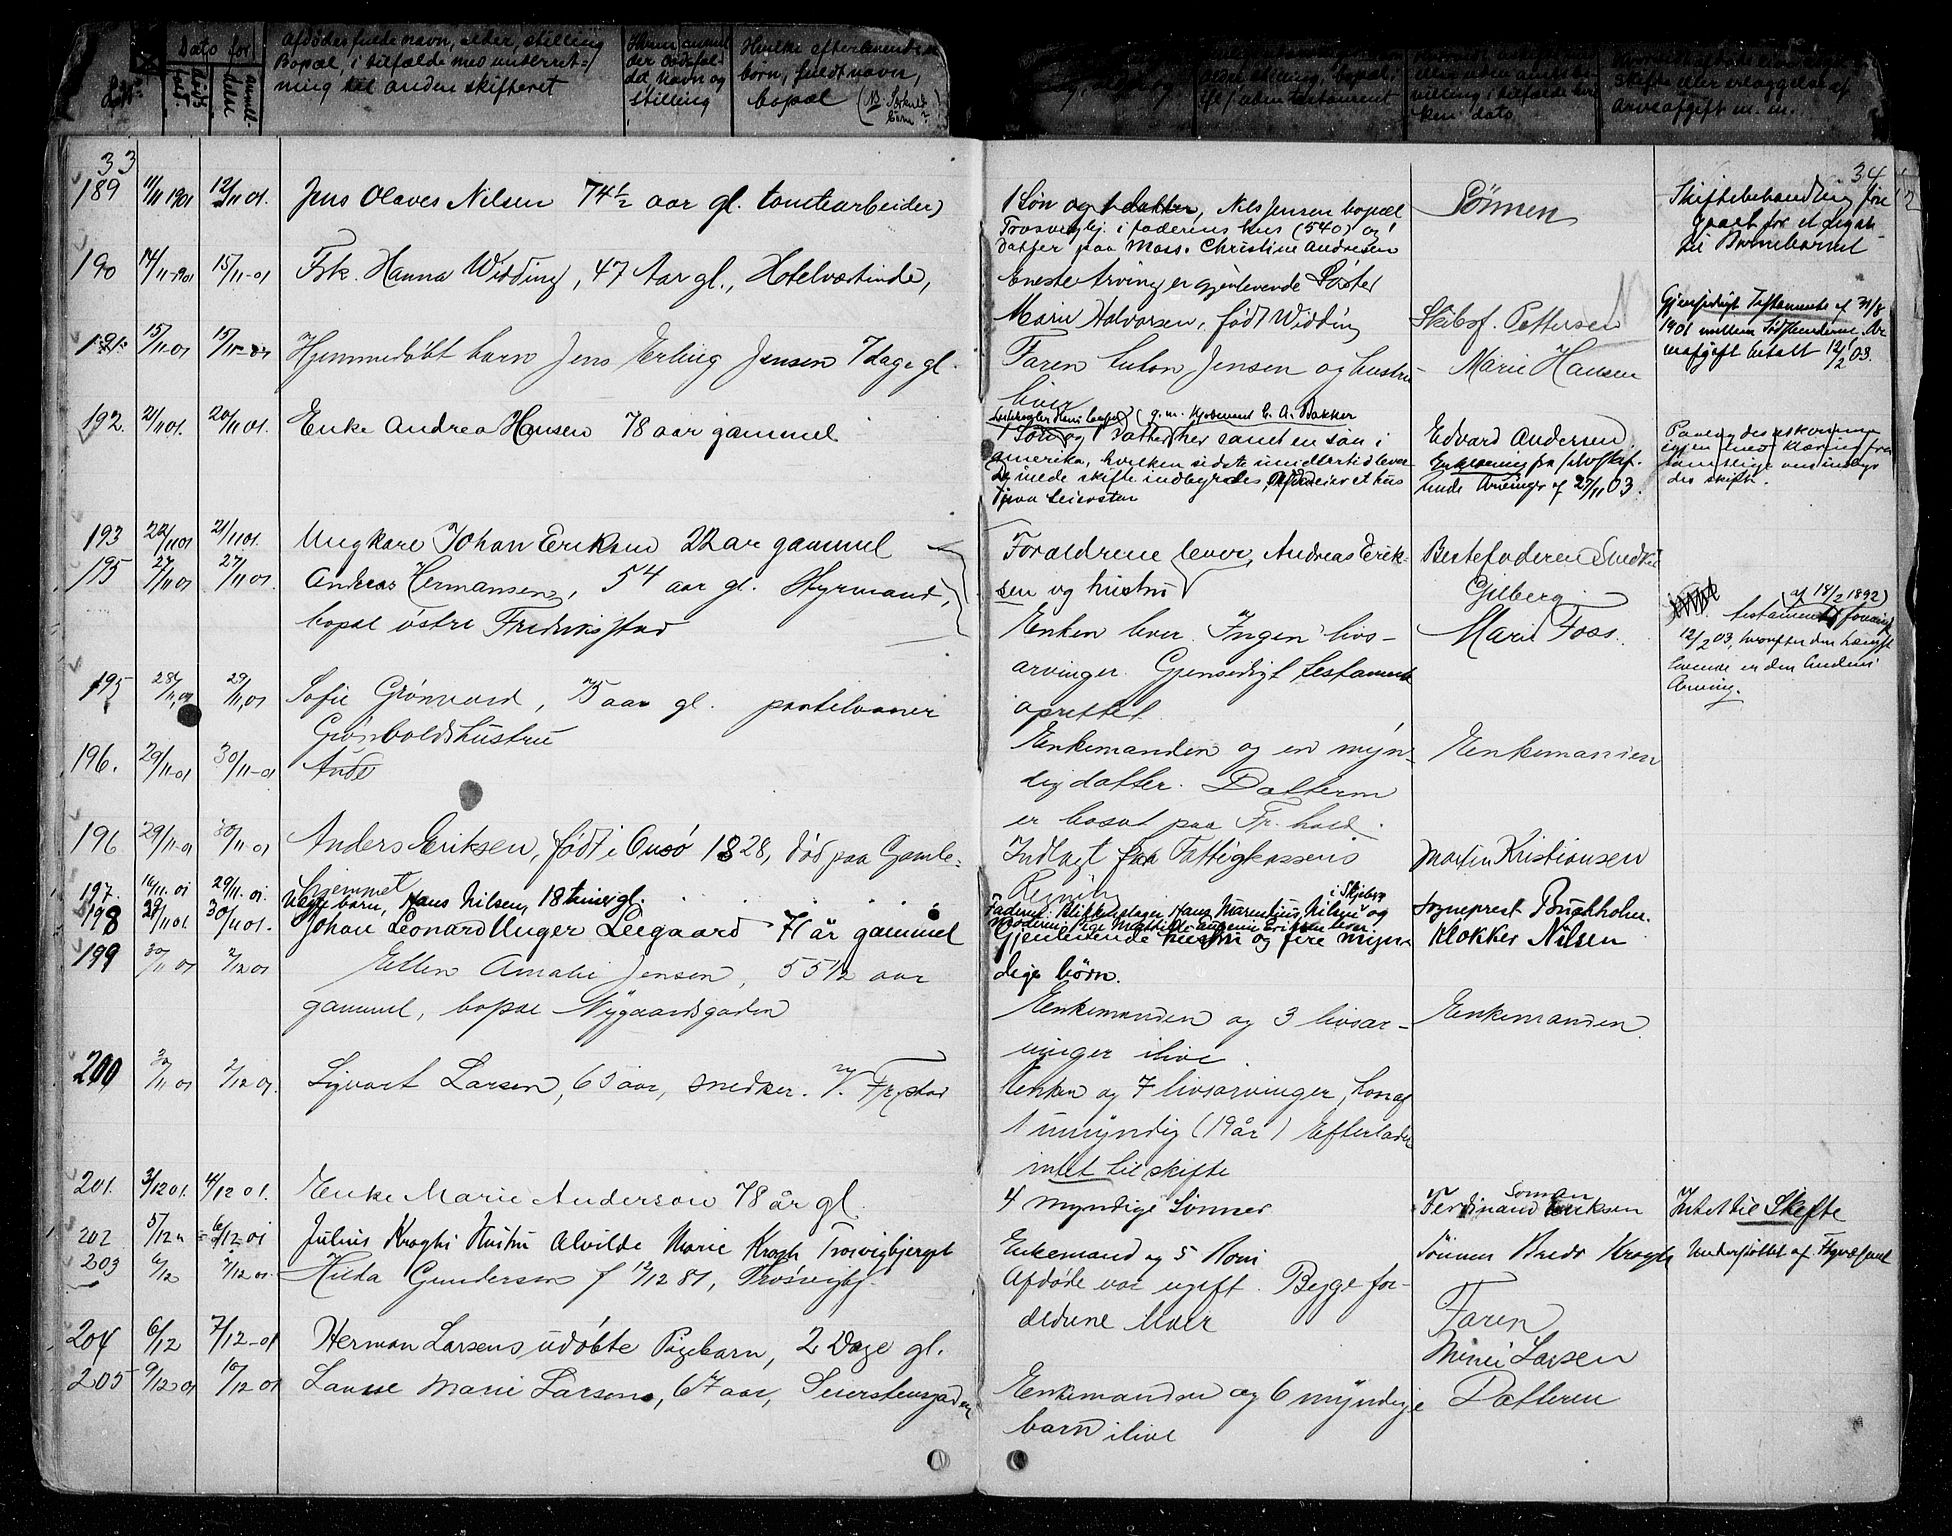 Dato for
död
anmeldelse
Afdødes fulde navn, alder, stilling
Bopæl, i tilfælde med underret-
ning til anden skifteret
der
det navn og
stilling
Hvilke efterlevende
børn, fuldt navn,
bopæl
skifte eller erlæggelse af
arveafgift m. m.
33
189 11/11 1901 12/11 01. Jens Olaves Nilsen 74 1/2 aar gl. tomtearbeider
190 14/11-1901 15/11-01 Frk. Hanna Widding, 47 Aar gl., Hotelvertinde,
191 15/11-01 15/11-01 Hjemmedøbt barn Jens Erling Jensen 7 dage gl.
192. 2/11 01. 20/11 01. Enke Andrea Hansen 78 aar gammel
193 22/11 01 21/11 01. Ungkare Johan Eriksen 22 ar gammel
195 27/11 01 27/11 01 Andreas Hermansen, 54 aar gl. Styrmand,
bopæl østre Fredriksstad
195 28/11,01 29/11,01 Sofie Grönvord, 75 aar gl.
Grönboldshustru
196. 29/11-01 30/11-01 Ande
196 29/11-01 30/11-01 Anders Eriksen, født i Onsö 1828, död paa Gamle-
hjemmet
197. 16/11. 01 29/11. 01. barn, Hans Nilsen, 18 timer gl.
198 29/11 01. 30/11 01. Johan Leonard Unger Leegaard 71 år gammel
199 30/11 01 2/12 01 Ellen Amalie Jensen, 55 1/2 aar
gammel, bopæl Nygaardsgaden
200 30/11 01 2/12 01. Sigvart Larsen, 60 aar, snedker. V. Fr.stad
201. 3/12 01. 4/12 01. Enke Marie Anderson 78 år gl.
202 5/12 6/12 01 Julius Kroghs Hustru Alvilde Marie Krogh Trosvigbjerget
203 6/12 7/12 01. Hilda Gundersen f 12/12 81, Trosvigbj.
204 6/12 7/12-01 Herman Larsens udøbte Pigebarn, 2 Dage gl.
205 9/12 01 10/12 01 Marie Larsen, 67 aar, Seierstensgaden
34
1 Søn og 1 datter, Nils Jensen bopæl
Trosvigbj. i faderens hus (540) og
Datter paa Moss. Christine Andresen
Sønnen
Skiftebehandling
til Barnebarnet
Eneste Arving er gjenlevende Søster
Marie Halvorsen, født Widding
Skibsf. Pettersen
Gjensidigt Testamente af 31/8
1901 mellem Ar-
veafgift betalt 12/2 03.
Faren Anton Jensen og hustru
lever
Marie Hansen
g. m. Kjøbmand E. A. Bakker
1 Søn og 1 Datter her samt en søn i
amerika, hvilken sidste imidlertid lever
De myndige skifte indbyrdes, Afdøde eier et hus
paa Leiersten
Edvard Andersen
Arvinger af 27/11 03.
igjen med klaring fra
samtlige om indbyr
des skifte.
Forældrene lever, Andreas Erik-
sen og hustru
Bestefaderen Smed
Gilberg
Enken lever. Ingen livs-
arvinger. Gjensidigt testament
oprettet
Marie Foss.
(af 18/2 1892)
testamente forevist
12/2 03, hvorefter den længst
levende er den Andens
Arving.
Enkemanden og en myn-
dig datter. Datteren
er bosat paa Fr. hald.
Enkemanden
Indlagt paa Fattigkassens
Regning
Martin Kristiansen
i Skjeberg
Faderen: Blikkenslager Hans Marenlius Nilsen og
Moderen: Pige Mathilde Eugenie Eriksen lever.
Sogneprest Buchholm.
Gjenlevende hustru og fire myn-
dige børn.
Klokker Nilsen
Enkemanden og 3 livsar-
vinger ilive.
Enkemanden
Enken og 7 livsarvinger, hvoraf
1 umyndig (19 år) Efterlader
intet til skifte
4 myndige Sønner
Sønnen
Ferdinand Eriksen
Intet til Skifte
Enkemand og 5 Børn
Sønnen Bredo Krogh
Understøttet af Fattigvæsenet
Afdøde var ugift. Begge for-
ældrene lever
Faren
Larsen
Enkemanden og 6 myndige
barn ilive
Datteren